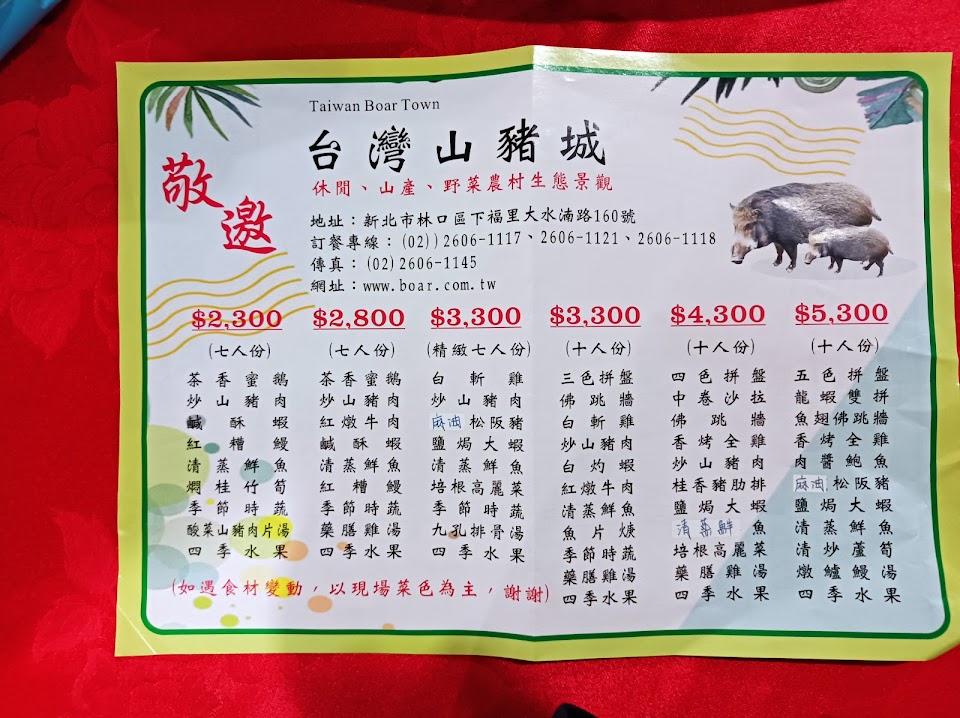 Taiwan Boar Town
台灣山豬城
敬邀
休閒、山產、野菜農村生態景觀
地址：新北市林口區下福里大水湳路160號
訂餐專線：(02))2606-1117、2606-1121、2606-1118
傳真：(02)2606-1145
網址：www.boar.com.tw
$2,300
(七人份)
茶香蜜鵝
炒山豬肉
鹹酥蝦
紅糟鰻
清蒸鮮魚
燜桂竹筍
季節時蔬
酸菜山豬肉片湯
四季水果
$2,800
(七人份)
茶香蜜鵝
炒山豬肉
紅燉牛肉
鹹酥蝦
清蒸鮮魚
紅糟鰻
季節時蔬
藥膳雞湯
四季水果
$3,300
(精緻七人份)
白斬雞
炒山豬肉
麻油松阪豬
鹽焗大蝦
清蒸鮮魚
培根高麗菜
季節時蔬
九孔排骨湯
四季水果
$3,300
(十人份)
三色拼盤
佛跳牆
白斬雞
炒山豬肉
白灼蝦
紅燉牛肉
清蒸鮮魚
魚片焿
季節時蔬
藥膳雞湯
四季水果
$4,300
(十人份)
四色拼盤
中卷沙拉
佛跳牆
香烤全雞
炒山豬肉
桂香豬肋排
鹽焗大蝦
清蒸鮮魚
培根高麗菜
藥膳雞湯
四季水果
$5,300
(十人份)
五色拼盤
龍蝦雙拼
魚翅佛跳牆
香烤全雞
肉醬鮑魚
麻油松阪豬
鹽焗大蝦
清蒸鮮魚
清炒蘆筍
燉鱸鰻湯
四季水果
(如遇食材變動，以現場菜色為主，謝謝)